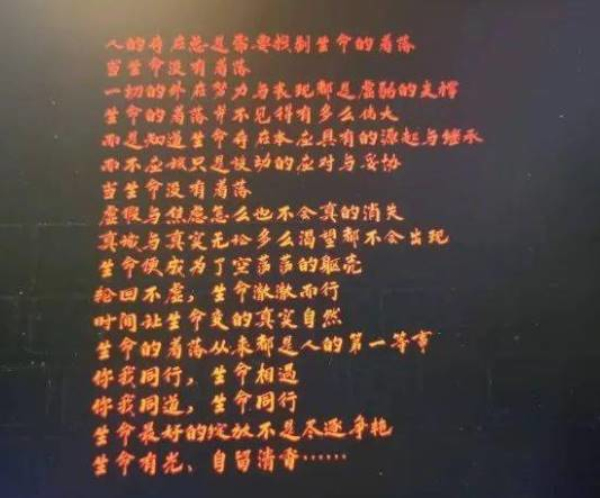 人的存在总是需要找到生命的着落
当生命没有着落
一切的外在努力与表现都是虚弱的支撑
生命的着落并不见得有多么伟大
而是知道生命存在本应具有的源起与继承
而不应该只是被动的应对与妥协
当生命没有着落
虚假与焦虑怎么也不会真的消失
真诚与真实无论多么渴望都不会出现
生命便成为了空荡荡的躯壳
轮回不虚，生命澈澈而行
时间让生命变的真实自然
生命的着落从来都是人的第一等事
你我同行，生命相遇
你我同道，生命同行
生命最好的绽放不是尽逐争艳
生命有光，自留清香……